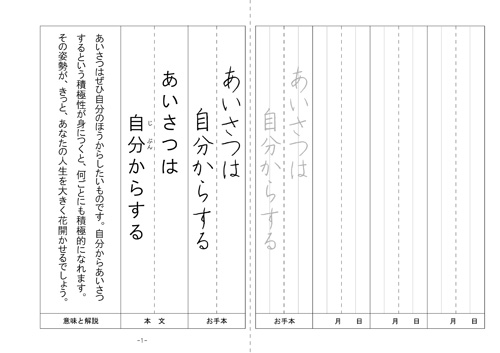 月 日
月 日
月 日
あいさつは
自分からする
お手本
あいさつは
自分からする
お手本
あいさつは
自分からする
じ ぶん
本 文
あいさつはぜひ自分のほうからしたいものです。自分からあいさつ
するという積極性が身につくと、何ごとにも積極的になれます。
その姿勢が、きっと、あなたの人生を大きく花開かせるでしょう。
意味と解説
-1-